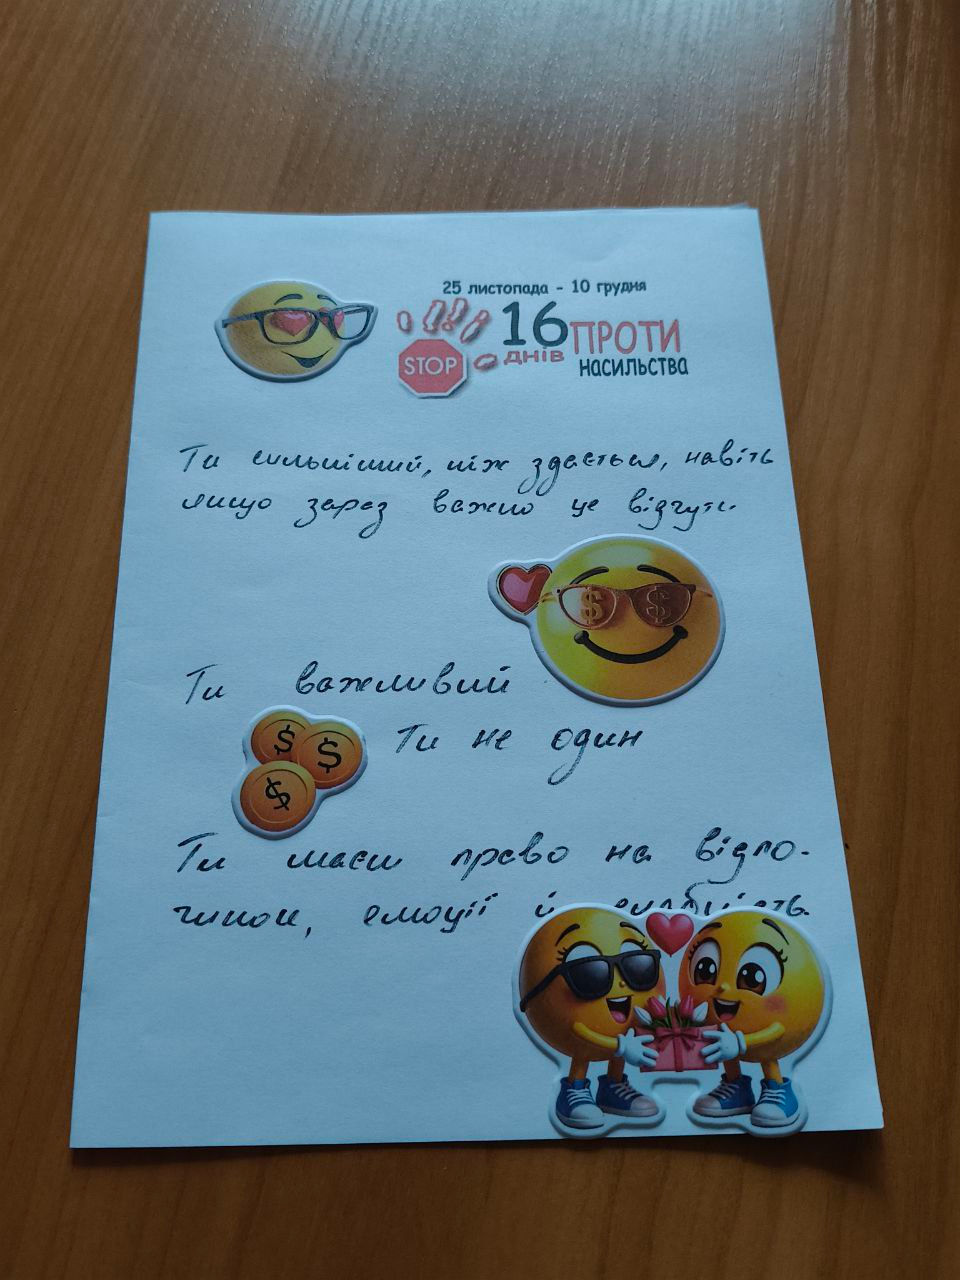 25 листопада - 10 грудня
STOP
16 ПРОТИ
ДНІВ
НАСИЛЬСТВА
Ти сильніший, ніж здається, навіть
якщо зараз важко це відчути
$ $
Ти важливий
Ти не один
$ $
$
Ти маєш право на відпо-
чинок, емоції й слабкість.